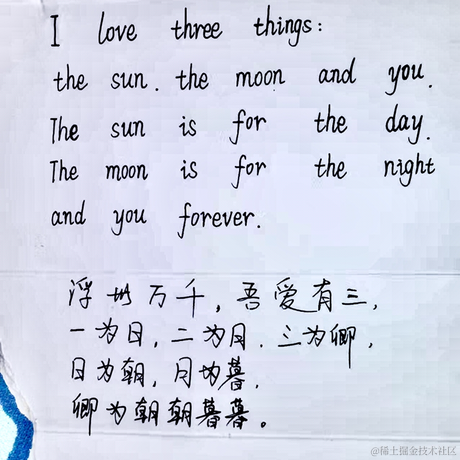 I love three things:
the sun. the moon and you.
The sun is for the day.
The moon is for the night
and you forever.
浮世万千，吾爱有三，
一为日，二为月．三为卿，
日为朝，月为暮，
卿为朝朝暮暮。
@稀土掘金技术社区